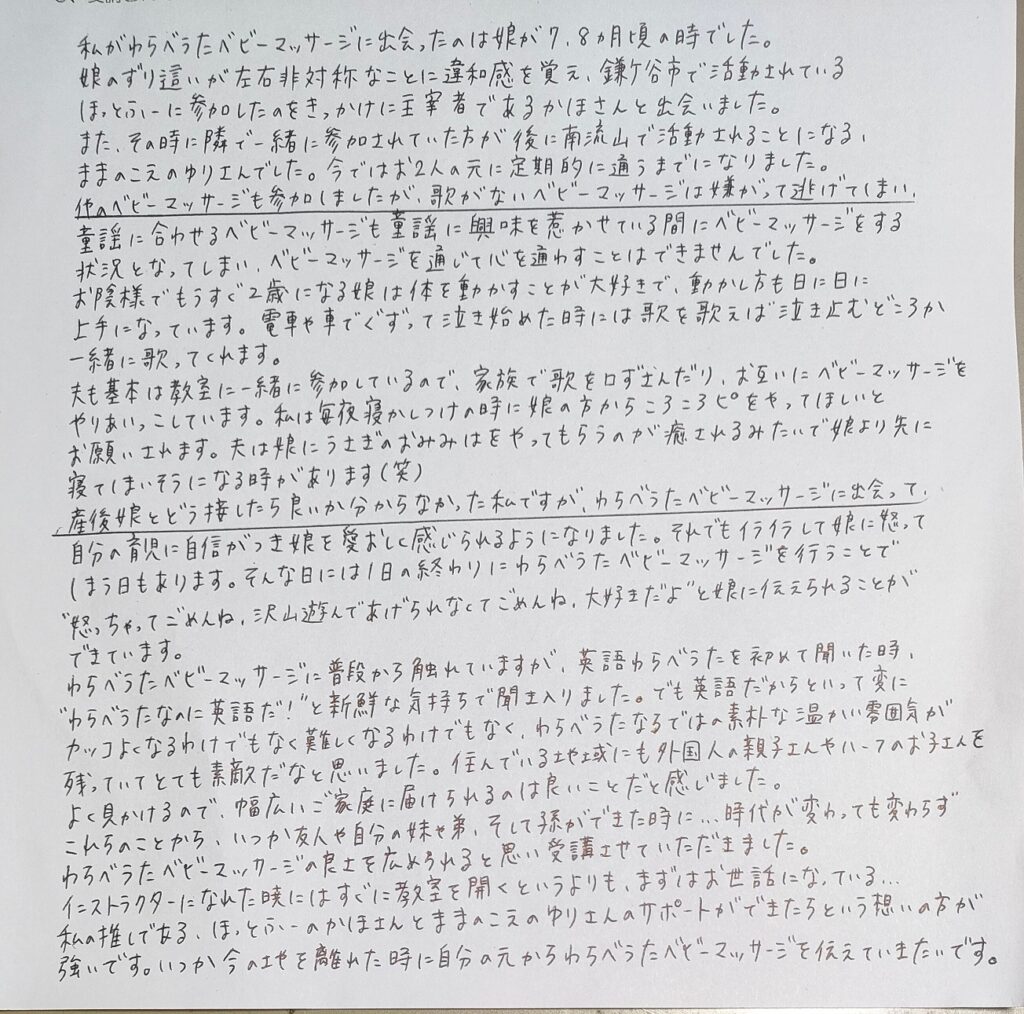 私がわらべうたベビーマッサージに出会ったのは娘が7、8ヵ月頃の時でした。
娘のずり這いが左右非対称なことに違和感を覚え、鎌ケ谷市で活動されている
ほっとふぅーに参加したのをきっかけに主宰者であるかほさんと出会いました。
また、その時に隣で一緒に参加されていた方が後に南流山で活動されることになる、
ままのこえのゆりさんでした。今ではお2人の元に定期的に通うまでになりました。
他のベビーマッサージも参加しましたが、歌がないベビーマッサージは嫌がって逃げてしまい、
童謡に合わせるベビーマッサージも童謡に興味を惹かせている間にベビーマッサージをする
状況となってしまい、ベビーマッサージを通じて心を通わすことはできませんでした。
お陰様でもうすぐ2歳になる娘は体を動かすことが大好きで、動かし方も日に日に
上手になっています。電車や車でぐずって泣き始めた時には歌を歌えば泣き止むどころか
一緒に歌ってくれます。
夫も基本は教室に一緒に参加しているので、家族で歌を口ずさんだり、お互いにベビーマッサージを
やりあいっこしています。私は毎夜寝かしつけの時に娘の方からころころピをやってほしいと
お願いされます。夫は娘にうさぎのおみみはをやってもらうのが癒されるみたいで娘より先に
寝てしまいそうになる時があります(笑)
産後娘とどう接したら良いか分からなかった私ですが、わらべうたベビーマッサージに出会って、
自分の育児に自信がつき娘を愛おしく感じられるようになりました。それでもイライラして娘に怒って
しまう日もあります。そんな日には1日の終わりにわらべうたベビーマッサージを行うことで
"怒っちゃってごめんね、沢山遊んであげられなくてごめんね、大好きだよ"と娘に伝えられることが
できています。
わらべうたベビーマッサージに普段から触れていますが、英語わらべうたを初めて聞いた時、
"わらべうたなのに英語だ!"と新鮮な気持ちで聞き入りました。でも英語だからといって変に
カッコよくなるわけでもなく難しくなるわけでもなく、わらべうたならではの素朴な温かい雰囲気が
残っていてとても素敵だなと思いました。住んでいる地域にも外国人の親子さんやハーフのお子さんを
よく見かけるので、幅広いご家庭に届けられるのは良いことだと感じました。
これらのことから、いつか友人や自分の妹や弟、そして孫ができた時に…時代が変わっても変わらず
わらべうたベビーマッサージの良さを広められると思い受講させていただきました。
インストラクターになれた暁にはすぐに教室を開くというよりも、まずはお世話になっている…
私の推しである、ほっとふぅーのかほさんとままのこえのゆりさんのサポートができたらという想いの方が
強いです。いつか今の地を離れた時に自分の元からわらべうたベビーマッサージを伝えていきたいです。